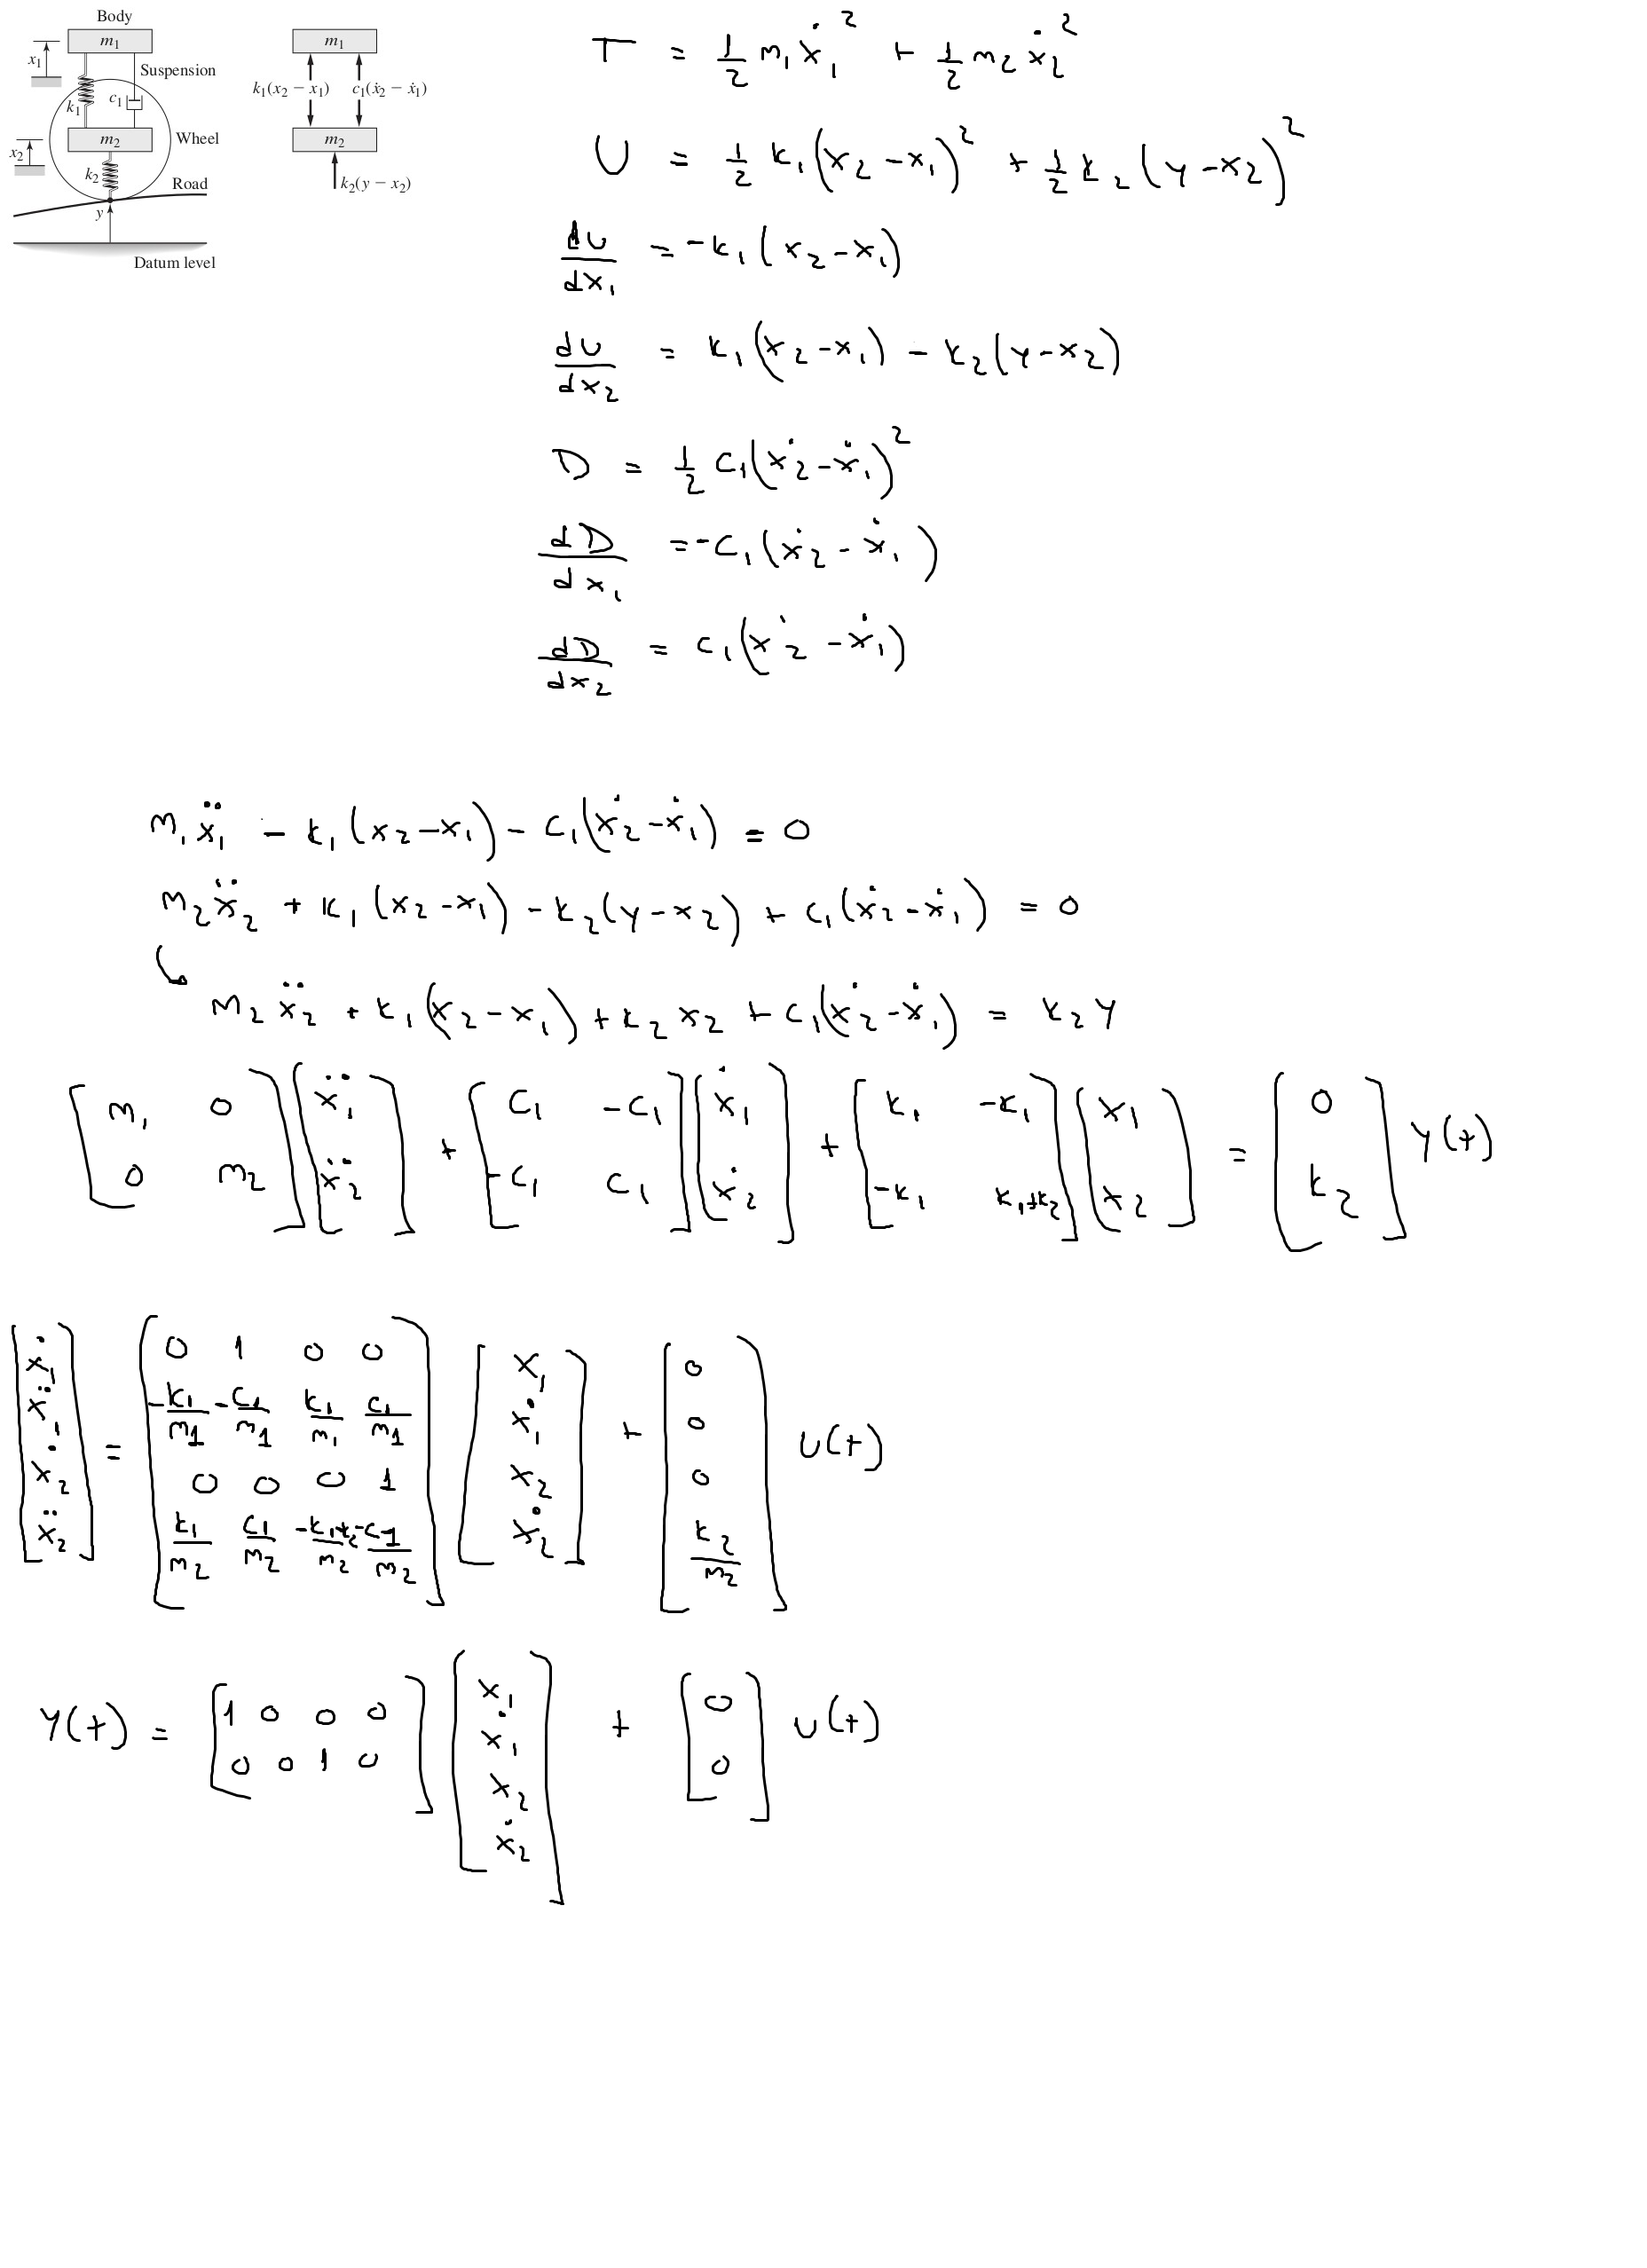 Body
m₁
x₁
Suspension
k₁
c₁
m₂
Wheel
x₂
k₂
Road
y
Datum level
m₁
k₁(x₂ − x₁) c₁(ẋ₂ − ẋ₁)
m₂
k₂(y − x₂)
T = 1/2 m₁ẋ₁² + 1/2 m₂ẋ₂²
U = 1/2 k₁(x₂ − x₁)² + 1/2 k₂(y − x₂)²
dU/dx₁ = −k₁(x₂ − x₁)
dU/dx₂ = k₁(x₂ − x₁) − k₂(y − x₂)
D = 1/2 c₁(ẋ₂ − ẋ₁)²
dD/dx₁ = −c₁(ẋ₂ − ẋ₁)
dD/dx₂ = c₁(ẋ₂ − ẋ₁)
m₁ẍ₁ − k₁(x₂ − x₁) − c₁(ẋ₂ − ẋ₁) = 0
m₂ẍ₂ + k₁(x₂ − x₁) − k₂(y − x₂) + c₁(ẋ₂ − ẋ₁) = 0
↳ m₂ẍ₂ + k₁(x₂ − x₁) + k₂x₂ + c₁(ẋ₂ − ẋ₁) = k₂y
[m₁ 0; 0 m₂][ẍ₁; ẍ₂] + [c₁ −c₁; −c₁ c₁][ẋ₁; ẋ₂] + [k₁ −k₁; −k₁ k₁+k₂][x₁; x₂] = [0; k₂] y(t)
[ẋ₁; ẍ₁; ẋ₂; ẍ₂] = [0 1 0 0; −k₁/m₁ −c₁/m₁ k₁/m₁ c₁/m₁; 0 0 0 1; k₁/m₂ c₁/m₂ −k₁+k₂/m₂ −c₁/m₂][x₁; ẋ₁; x₂; ẋ₂] + [0; 0; 0; k₂/m₂] u(t)
y(t) = [1 0 0 0; 0 0 1 0][x₁; ẋ₁; x₂; ẋ₂] + [0; 0] u(t)